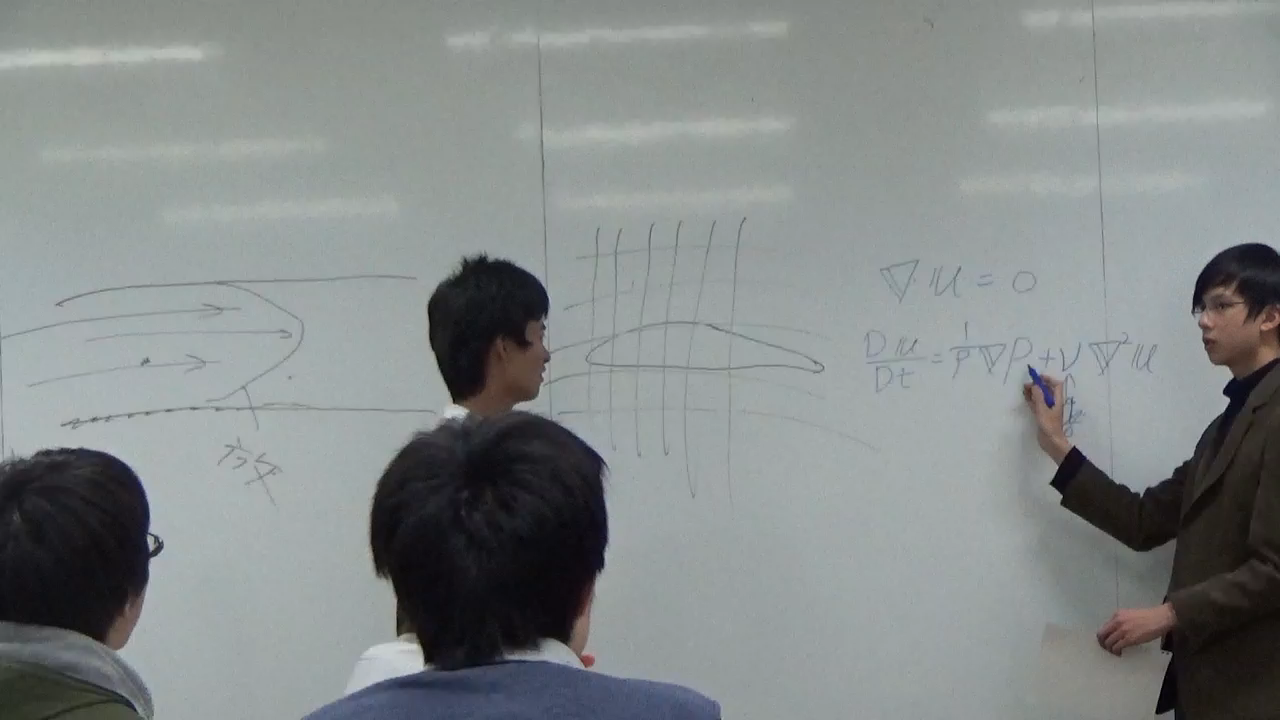 ∇·u = 0
Du/Dt = 1/ρ ∇p + ν ∇²u